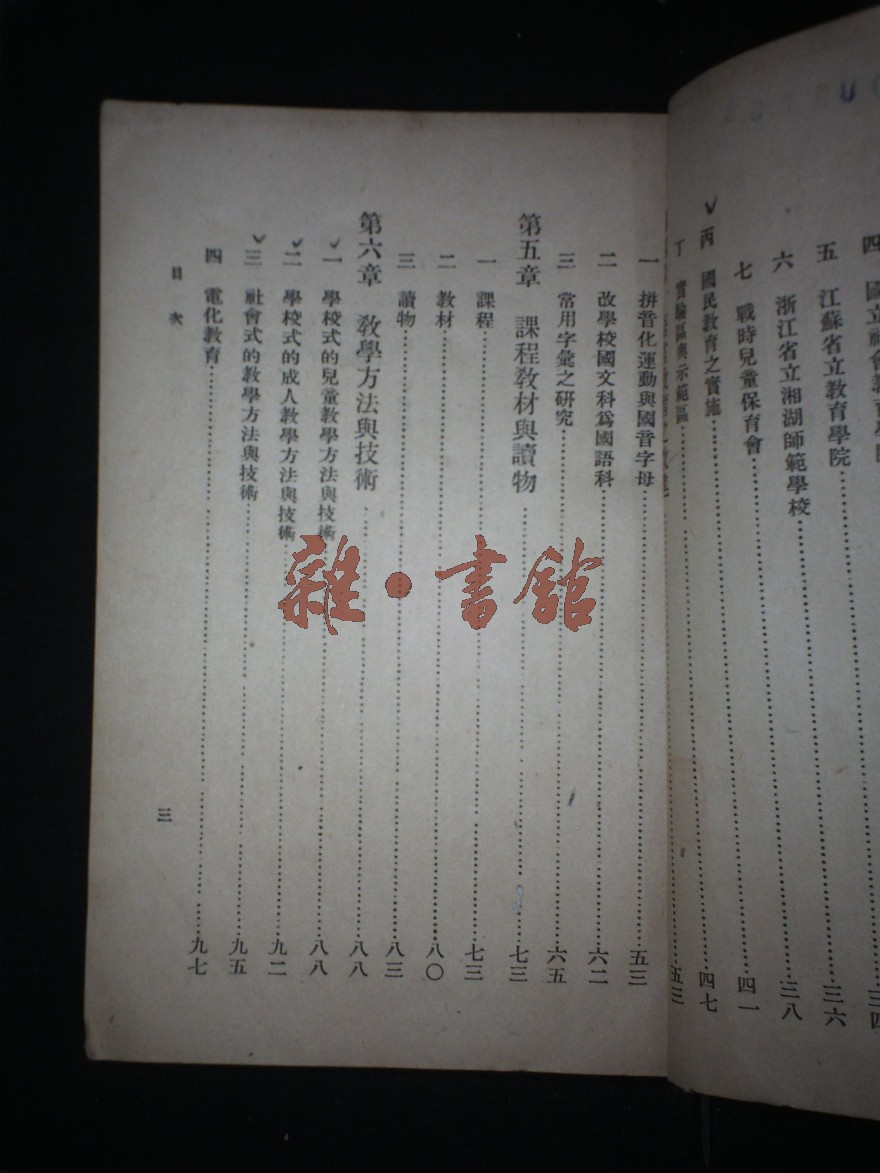 四　國立社會教育學院……三四
五　江蘇省立教育學院……三六
六　浙江省立湘湖師範學校……三八
七　戰時兒童保育會……四一
丙　國民教育之實施……四七
丁　實驗區與示範區……五三
一　拼音化運動與國音字母……五三
二　改學校國文科爲國語科……六二
三　常用字彙之研究……六五
第五章　課程教材與讀物……七三
一　課程……七三
二　教材……八〇
三　讀物……八三
第六章　教學方法與技術……八八
一　學校式的兒童教學方法與技術……八八
二　學校式的成人教學方法與技術……九二
三　社會式的教學方法與技術……九五
四　電化教育……九七
目次　三
雜·書館